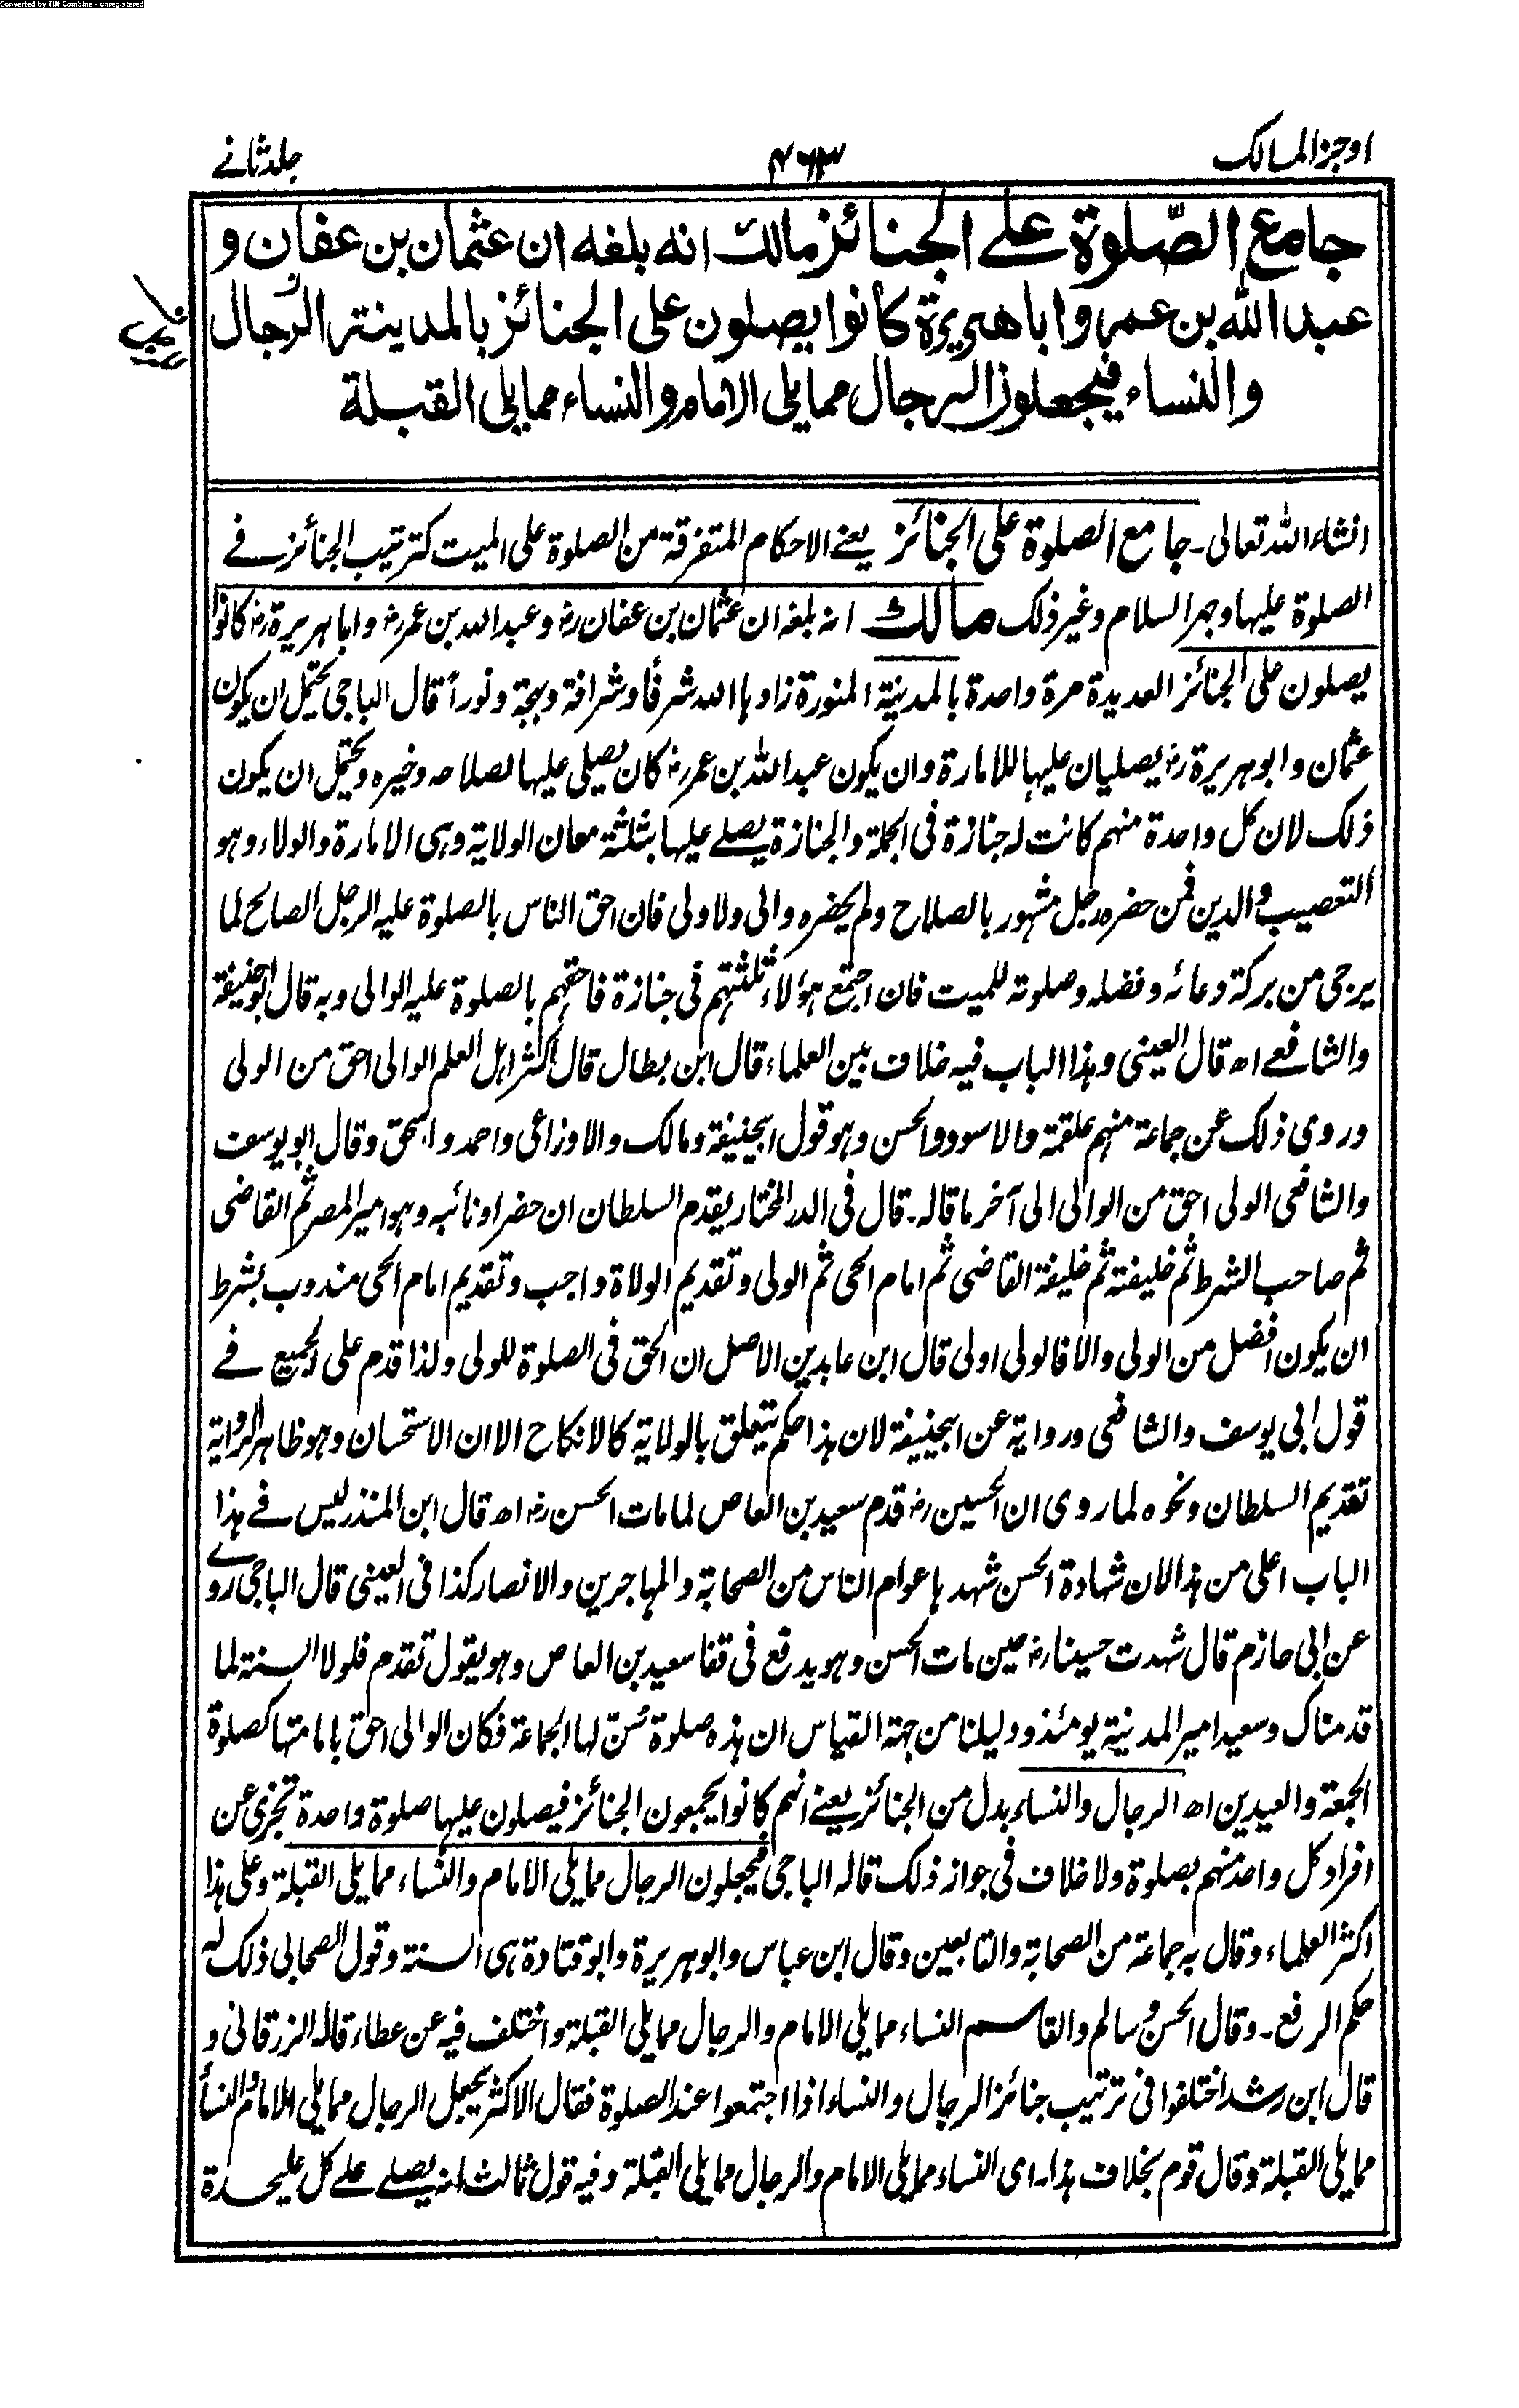 Converted by Tiff Combine - unregistered
اوجز المسالک
۴۶۳
جلد ثانے
جامع الصّلوة علے الجنائز مالك انه بلغه ان عثمان بن عفان و
عبد الله بن عمر وابا هريرة كانوا يصلون على الجنائز بالمدينة الرجال
والنساء فيجعلون الرجال مما يلى الامام والنساء مما يلى القبلة
انشاء الله تعالى۔ جامع الصلوة على الجنائز یعنے الاحکام المتفرقة من الصلوة على الميت كترتيب الجنائز فے
الصلوة عليها وجهر السلام وغير ذلك مالك انه بلغه ان عثمان بن عفان رض وعبد الله بن عمر رض وابا هريرة رض كانوا
يصلون على الجنائز العديدة مرة واحدة بالمدينة المنورة زادها الله شرفاً وشرافة وبهجة ونوراً قال الباجى يحتمل ان يكون
عثمان وابو هريرة رض يصليان عليها للامارة وان يكون عبد الله بن عمر رض كان يصلى عليها لصلاحه وخيره ويحتمل ان يكون
ذلك لان كل واحدة منهم كانت له جنازة فى الجملة والجنازة يصلے عليها بثلثة معان الولاية وهى الامارة والولاء وهو
التعصيب والدين فمن حضره رجل مشهور بالصلاح ولم يحضره والى ولا ولى فان احق الناس بالصلوة عليه الرجل الصالح لما
يرجى من بركة دعائه وفضله وصلوته للميت فان اجتمع هؤلاء ثلثتهم فى جنازة فاحقهم بالصلوة عليه الوالى وبه قال ابو حنيفة
والشافعے اھ قال العينى وهذا الباب فيه خلاف بين العلماء قال ابن بطال قال اكثر اهل العلم الوالى احق من الولى
وروى ذلك عن جماعة منهم علقمة والاسود والحسن وهو قول ابيحنيفة ومالك والاوزاعى واحمد واسحق وقال ابو يوسف
والشافعى الولى احق من الوالى الى آخر ما قاله۔ قال فى الدر المختار يقدم السلطان ان حضر او نائبه وهو امير المصر ثم القاضى
ثم صاحب الشرط ثم خليفته ثم خليفة القاضى ثم امام الحى ثم الولى وتقديم الولاة واجب وتقديم امام الحى مندوب بشرط
ان يكون افضل من الولى والا فالولى اولى قال ابن عابدين الاصل ان الحق فى الصلوة للولى ولذا قدم على الجميع فے
قول ابى يوسف والشافعى ورواية عن ابيحنيفة لان هذا حكم يتعلق بالولاية كالانكاح الا ان الاستحسان وهو ظاهر الرواية
تقديم السلطان ونحوه لما روى ان الحسين رض قدم سعيد بن العاص لما مات الحسن رض اھ قال ابن المنذر ليس فے هذا
الباب اعلى من هذا لان شهادة الحسن شهدها عوام الناس من الصحابة والمهاجرين والانصار كذا فى العينى قال الباجى روے
عن ابى حازم قال شهدت حسينا رض حين مات الحسن وهو يدفع فى قفا سعيد بن العاص وهو يقول تقدم فلولا السنة لما
قدمناك وسعيد امير المدينة يومئذ ودليلنا من جهة القياس ان هذه صلوة سُنّ لها الجماعة فكان الوالى احق بامامتها كصلوة
الجمعة والعيدين اھ الرجال والنساء بدل من الجنائز يعنے انهم كانوا يجمعون الجنائز فيصلون عليها صلوة واحدة تجزئ عن
افراد كل واحد منهم بصلوة ولا خلاف فى جواز ذلك قاله الباجى فيجعلون الرجال مما يلى الامام والنساء مما يلى القبلة وعلى هذا
اكثر العلماء وقال به جماعة من الصحابة والتابعين وقال ابن عباس وابو هريرة وابو قتادة هى السنة وقول الصحابى ذلك له
حكم الرفع۔ وقال الحسن وسالم والقاسم النساء مما يلى الامام والرجال مما يلى القبلة واختلف فيه عن عطاء قاله الزرقانى و
قال ابن رشد اختلفوا فى ترتيب جنائز الرجال والنساء اذا اجتمعوا عند الصلوة فقال الاكثر يجعل الرجال مما يلى الامام والنساء
مما يلى القبلة وقال قوم بخلاف هذا۔ اى النساء مما يلى الامام والرجال مما يلى القبلة وفيه قول ثالث انه يصلے علے كل عليحدة